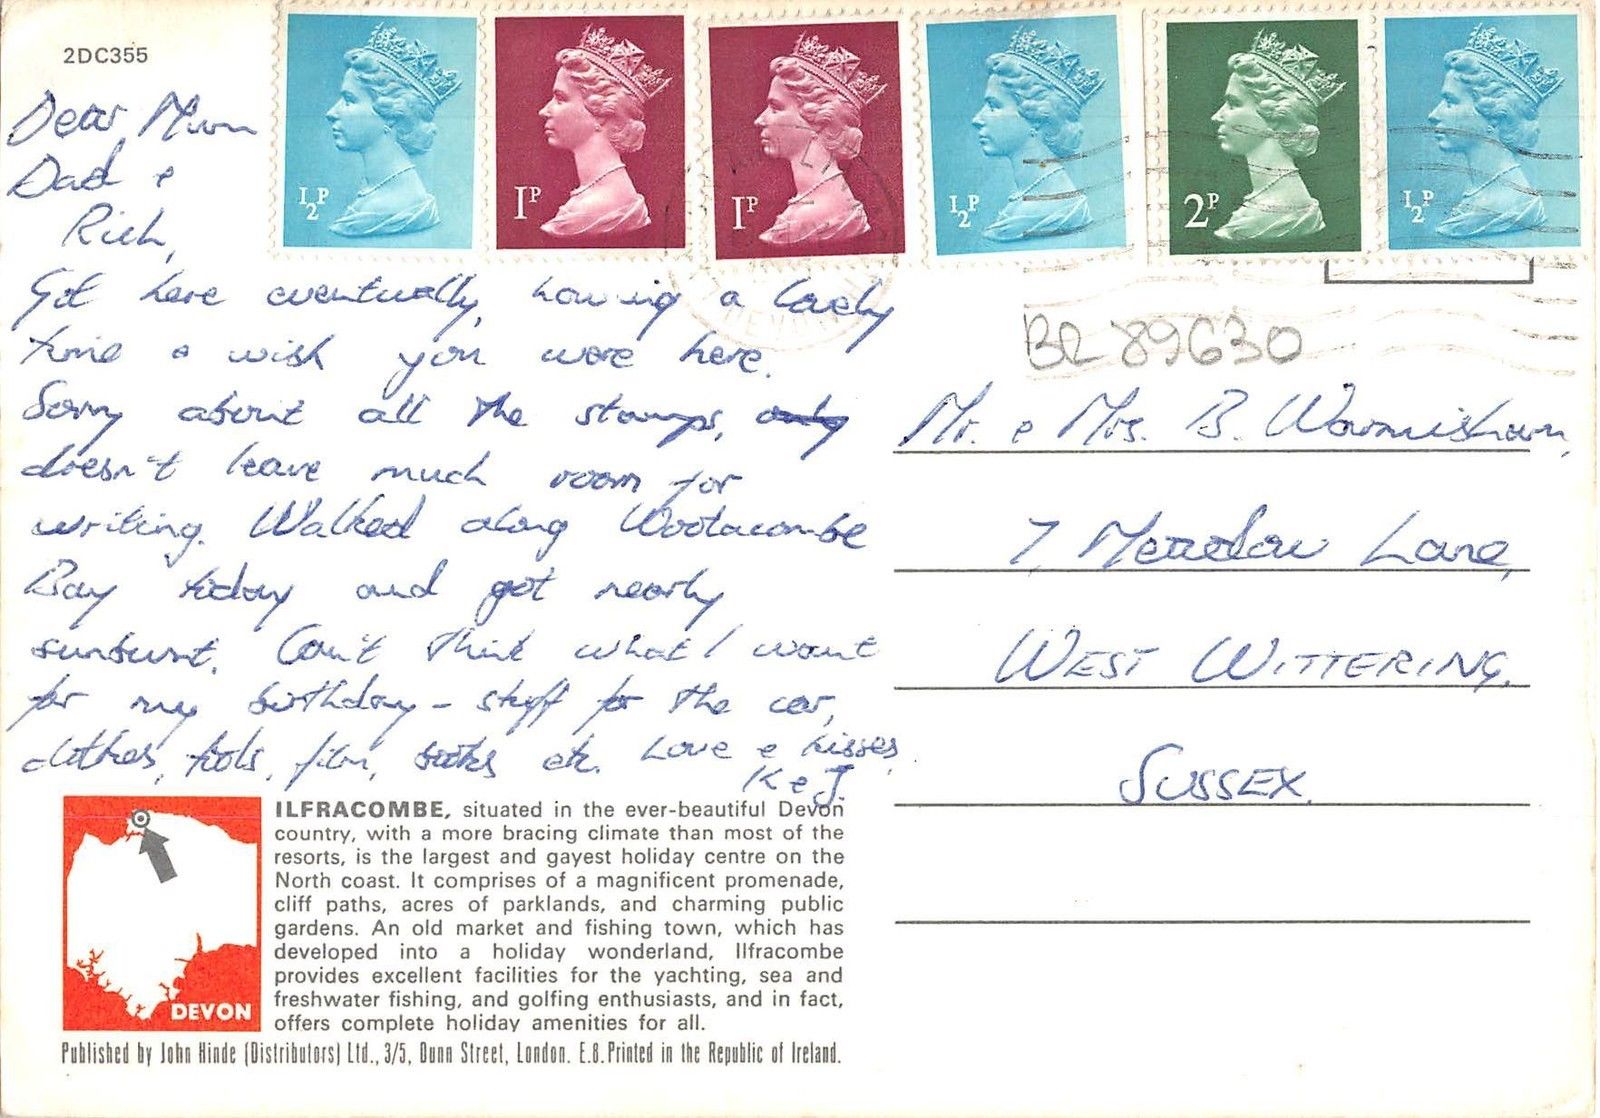 2DC355
½P
1P
1P
½P
2P
½P
Dear Mum
Dad &
Rich,
Got here eventually, having a lovely
time & wish you were here.
Sorry about all the stamps, only
doesn't leave much room for
writing. Walked along Woolacombe
Bay today and got nearly
sunburnt. Can't think what I want
for my birthday - stuff for the car,
clothes, tools, film, books etc. Love & kisses
K & J.
BR 89630
Mr. & Mrs. B. Warmisham,
7, Meadow Lane,
WEST WITTERING,
SUSSEX.
DEVON
ILFRACOMBE, situated in the ever-beautiful Devon
country, with a more bracing climate than most of the
resorts, is the largest and gayest holiday centre on the
North coast. It comprises of a magnificent promenade,
cliff paths, acres of parklands, and charming public
gardens. An old market and fishing town, which has
developed into a holiday wonderland, Ilfracombe
provides excellent facilities for the yachting, sea and
freshwater fishing, and golfing enthusiasts, and in fact,
offers complete holiday amenities for all.
Published by John Hinde (Distributors) Ltd., 3/5, Dunn Street, London. E.8. Printed in the Republic of Ireland.